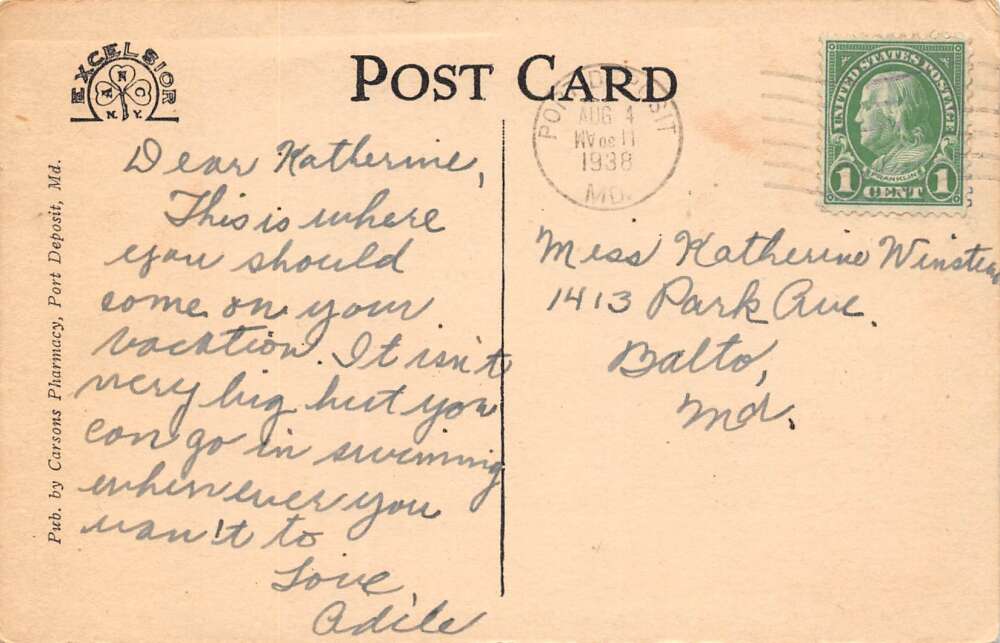 EXCELSIOR
A N C
N.Y.
POST CARD
Pub. by Carsons Pharmacy, Port Deposit, Md.
Dear Katherine,
This is where
you should
come on your
vacation. It isn't
very big but you
can go in swimming
whenever you
wan't to
Love,
Adile
PORT DEPOSIT
AUG 4
1938
MD.
UNITED STATES POSTAGE
FRANKLIN
1 CENT 1
Miss Katherine
1413 Park Ave.
Balto,
Md.